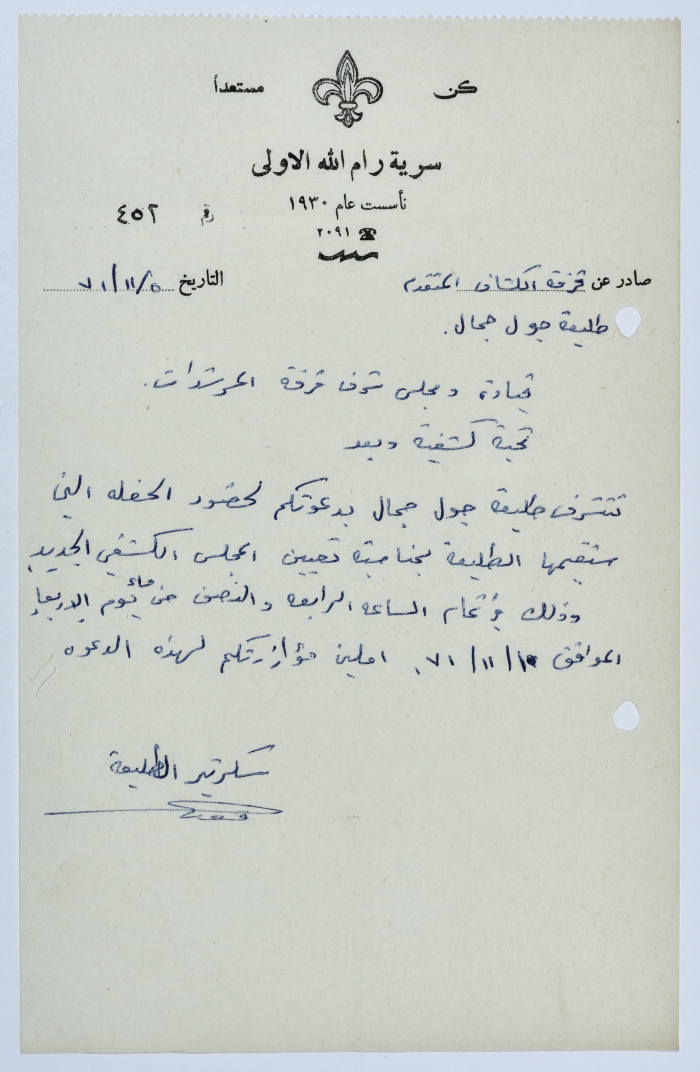 كن مستعداً
سرية رام الله الاولى
تأسست عام ١٩٣٠
رقم ٤٥٢
☎ ٢٠٩١
صادر عن فرقة الكشاف المتقدم التاريخ ٧١/١١/٥
طليعة جول جمال.
قيادة ومجلس شرف فرقة المرشدات.
تحية كشفية وبعد
تتشرف طليعة جول جمال بدعوتكم لحضور الحفله التي
ستقيمها الطليعة بمناسبة تعيين المجلس الكشفي الجديد
وذلك في تمام الساعه الرابعه والنصف من مساء يوم الاربعاء
الموافق ٧١/١١/١٠. املين مؤازرتكم لهذه الدعوه
سكرتير الطليعة